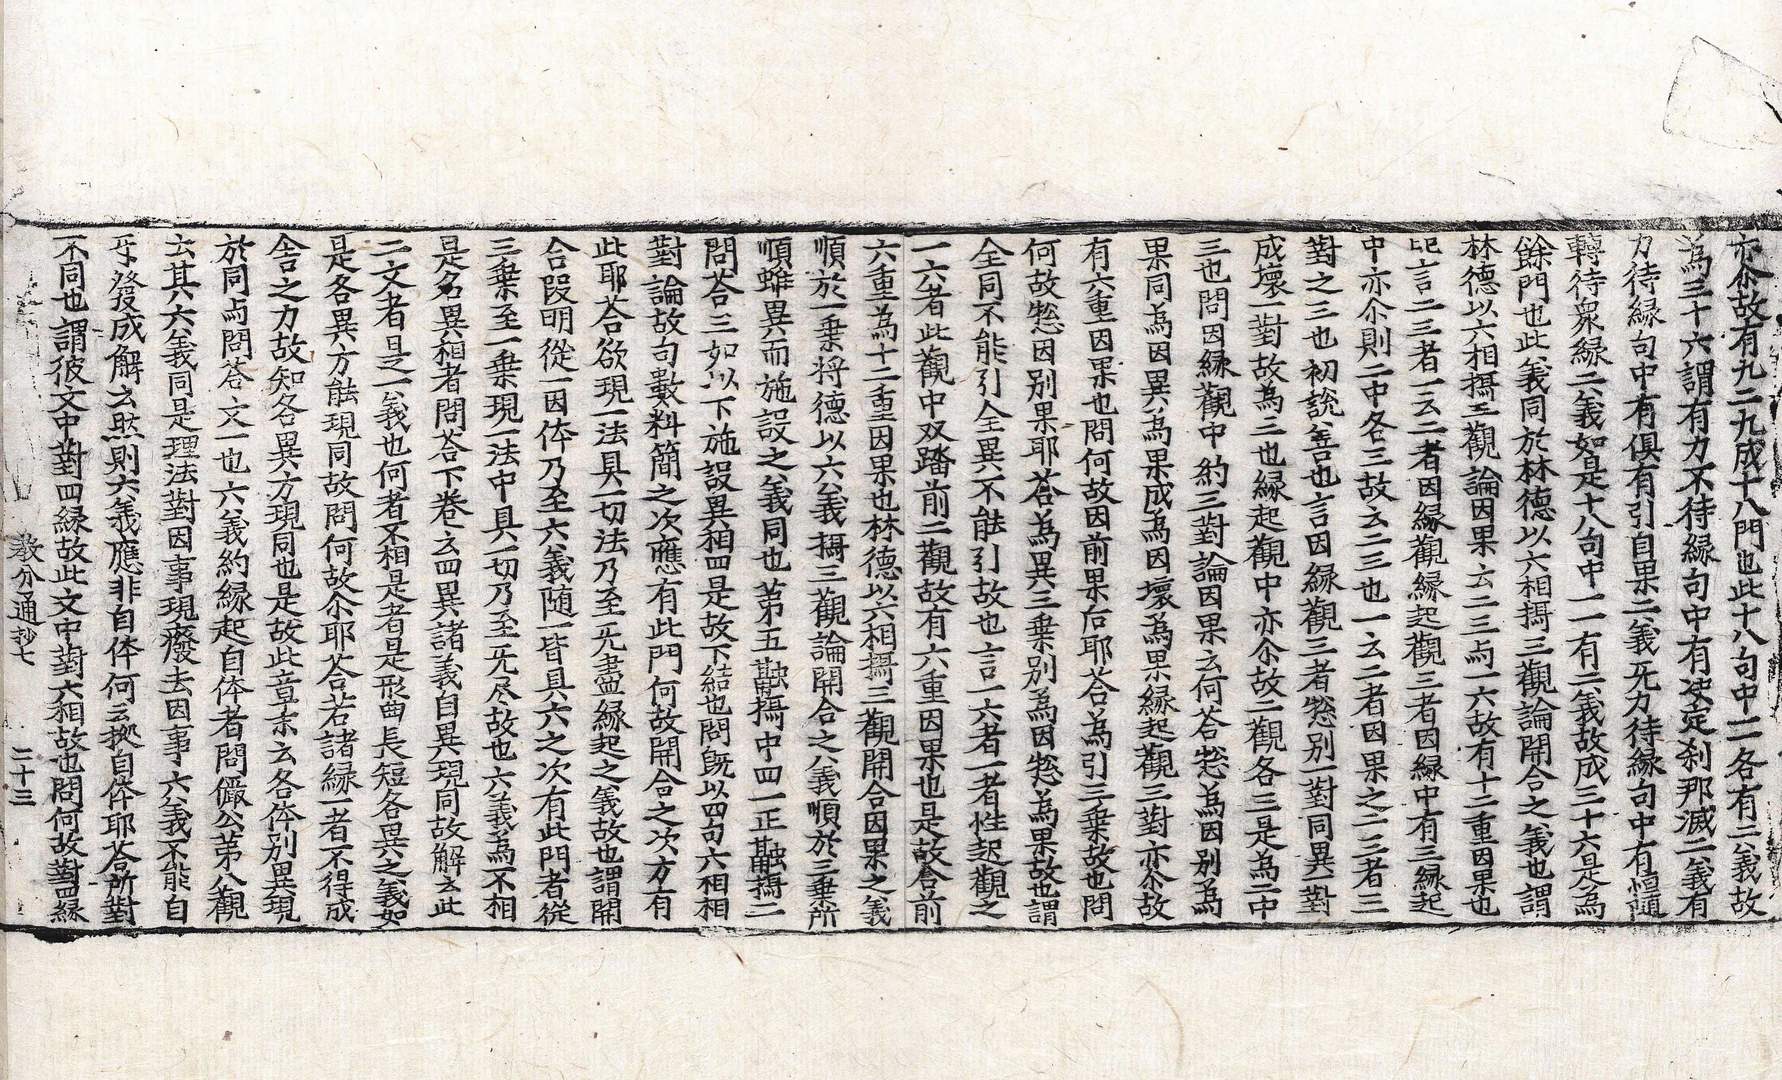 亦尒故有九二九成十八門也此十八句中一一各有二義故
為三十六謂有力不待緣句中有決定刹那滅二義有
力待緣句中有俱有引自果二義无力待緣句中有恒隨
轉待衆緣二義如是十八句中一一有二義故成三十六是為
餘門也此義同於林德以六相攝三觀論開合之義也謂
林德以六相攝三觀論因果云二三与一六故有十二重因果也
此言二三者一云二者因緣觀緣起觀三者因緣中有三緣起
中亦尒則二中各三故云二三也一云二者因果之二三者三
對之三也初說善也言因緣觀三者惣別一對同異一對
成壞一對故為三也緣起觀中亦尒故二觀各三是為二中
三也問因緣觀中約三對論因果云何荅惣為因別為
果同為因異為果成為因壞為果緣起觀三對亦尒故
有六重因果也問何故因前果后耶荅為引三乗故也問
何故惣因別果耶荅為異三乗別為因惣為果故也謂
全同不能引全異不能引故也言一六者一者性起觀之
一六者此觀中双踏前二觀故有六重因果也是故合前
六重為十二重因果也林德以六相攝三觀開合因果之義
順於一乗將德以六義攝三觀論開合之義順於三乗所
順雖異而施設之義同也第五融攝中四一正融攝二
問荅三如以下施設異相四是故下結也問旣以四句六相相
對論故句數料簡之次應有此門何故開合之次方有
此耶荅欲現一法具一切法乃至无盡緣起之義故也謂開
合段明從一因体乃至六義隨一皆具六之次有此門者從
三乗至一乗現一法中具一切乃至无尽故也六義為不相
是名異相者問荅下卷云四異諸義自異現同故解云此
二文者是一義也何者不相是者是形曲長短各異之義如
是各異方能現同故問何故尒耶荅若諸緣一者不得成
舍之力故知各異方現同也是故此章末云各体別異現
於同与問荅文一也六義約緣起自体者問儼公第八觀
云其六六義同是理法對因事現癈去因事六義不能自
孑發成解云然則六義應非自体何云㩀自体耶荅所對
不同也謂彼文中對四緣故此文中對六相故也問何故對四緣
教分通抄七　二十三